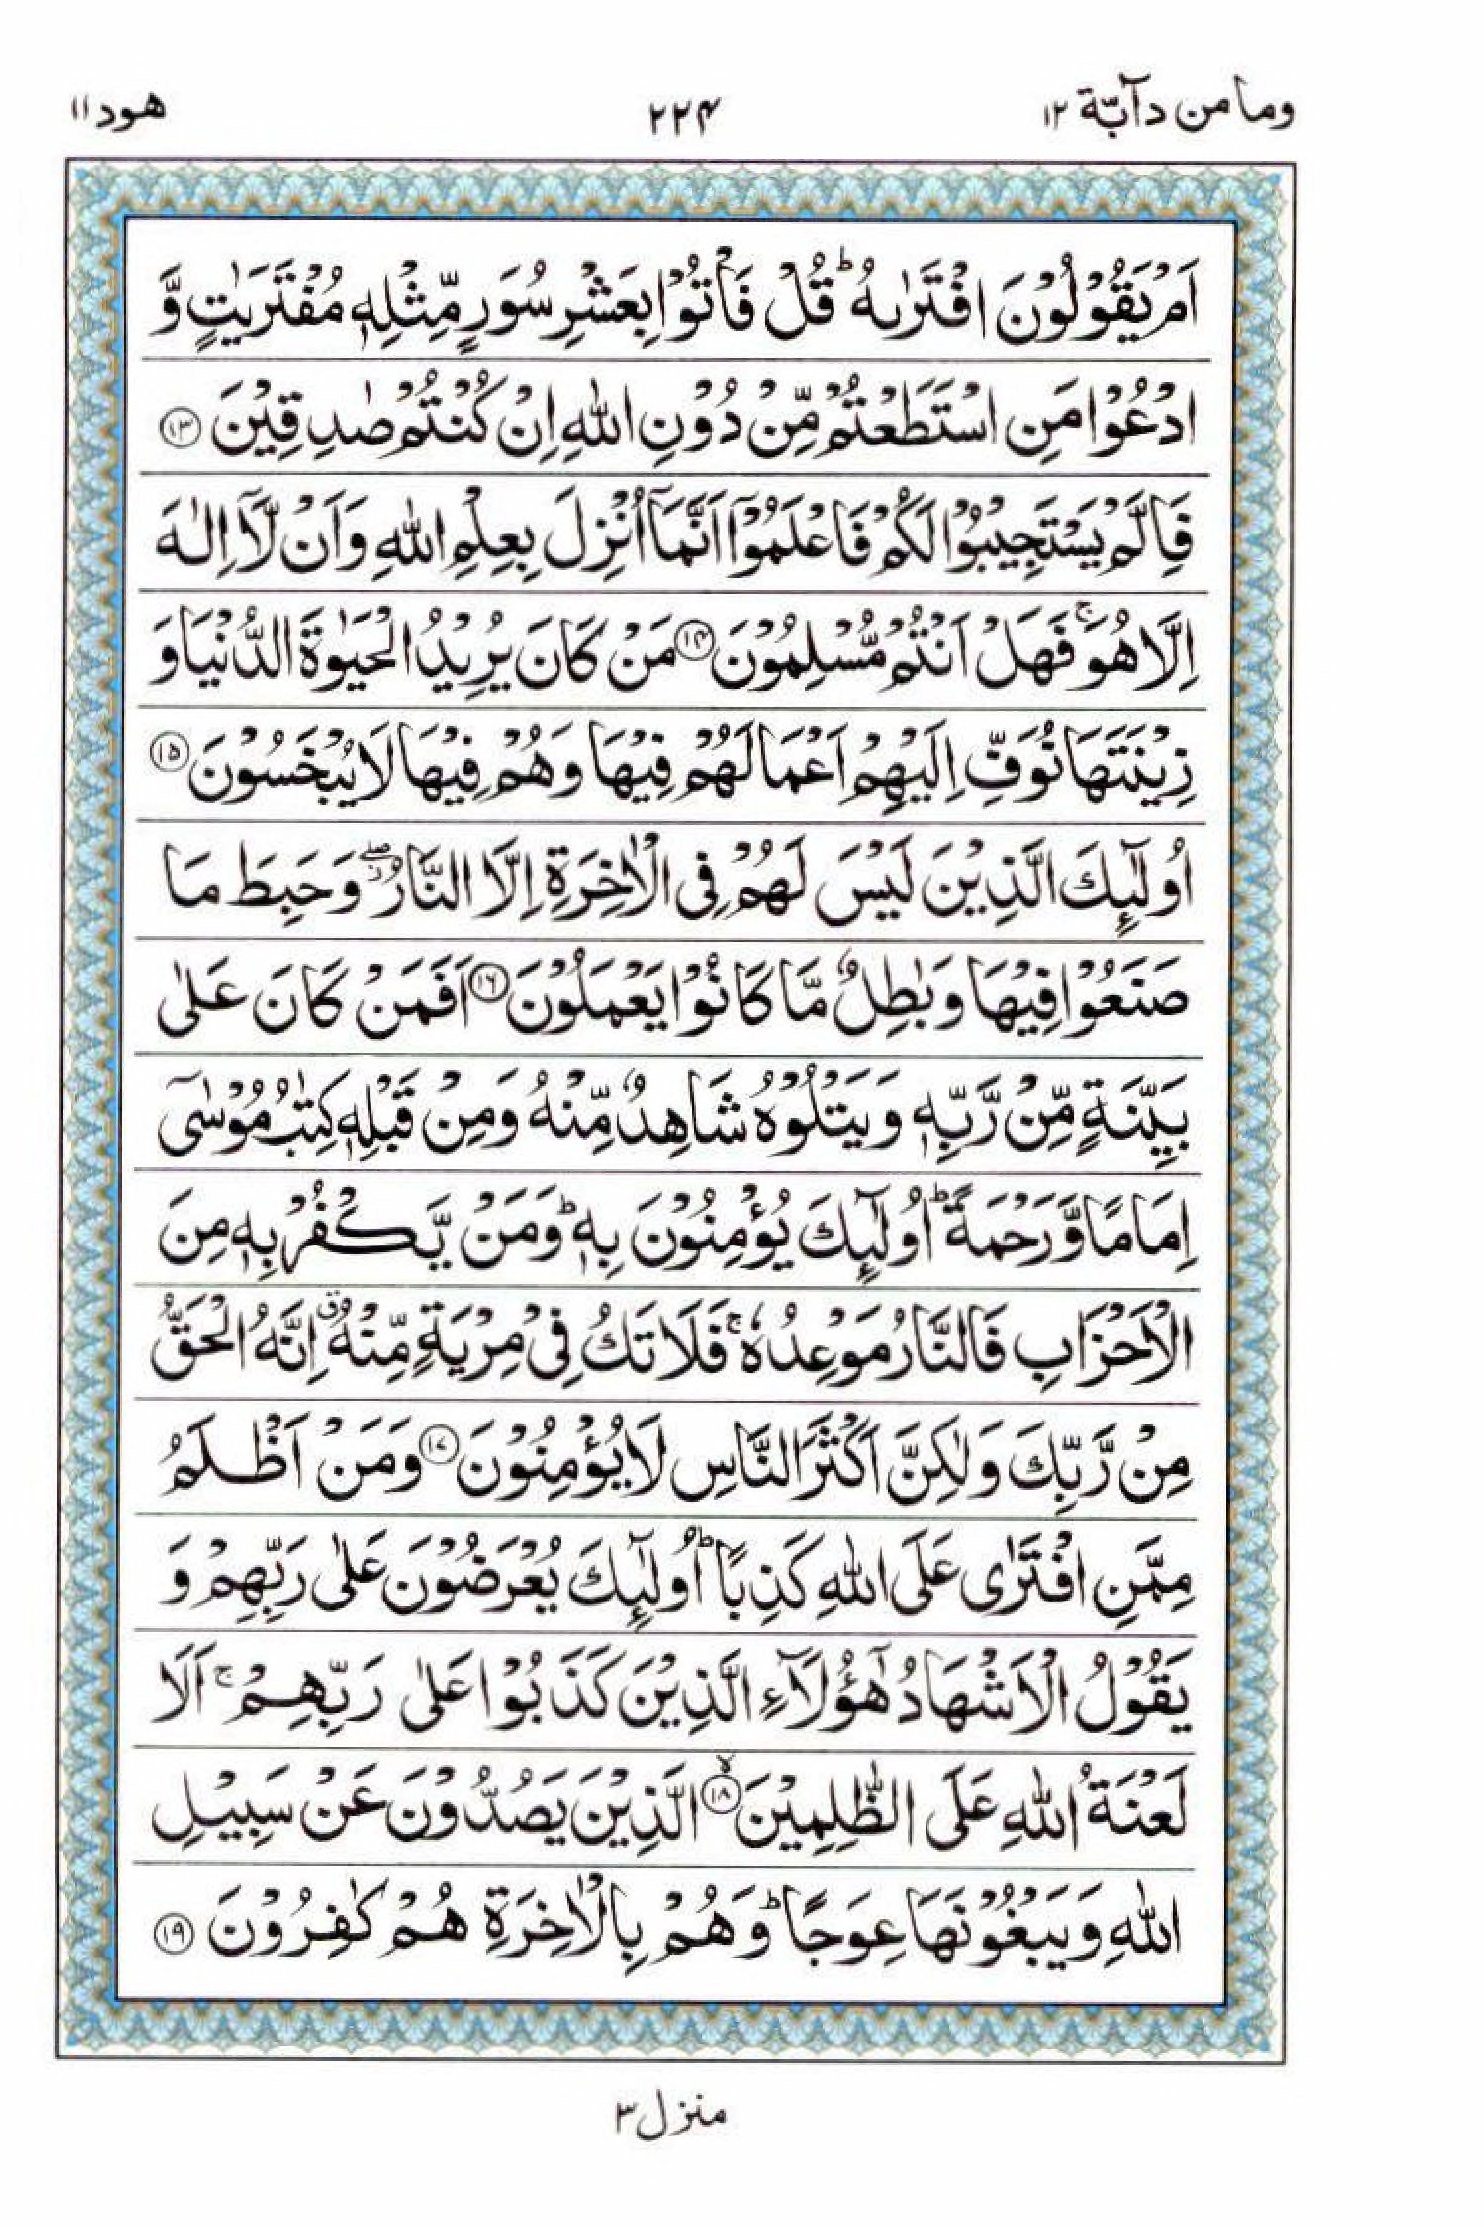 وما من دآبّة ١٢ ٢٢٤ هود ١١
اَمْ يَقُوْلُوْنَ افْتَرٰىهُ ؕ قُلْ فَاْتُوْا بِعَشْرِ سُوَرٍ مِّثْلِهٖ مُفْتَرَيٰتٍ وَّ
ادْعُوْا مَنِ اسْتَطَعْتُمْ مِّنْ دُوْنِ اللّٰهِ اِنْ كُنْتُمْ صٰدِقِيْنَ ۝١٣
فَاِلَّمْ يَسْتَجِيْبُوْا لَكُمْ فَاعْلَمُوْۤا اَنَّمَاۤ اُنْزِلَ بِعِلْمِ اللّٰهِ وَاَنْ لَّاۤ اِلٰهَ
اِلَّا هُوَ ۚ فَهَلْ اَنْتُمْ مُّسْلِمُوْنَ ۝١٤ مَنْ كَانَ يُرِيْدُ الْحَيٰوةَ الدُّنْيَا وَ
زِيْنَتَهَا نُوَفِّ اِلَيْهِمْ اَعْمَالَهُمْ فِيْهَا وَهُمْ فِيْهَا لَا يُبْخَسُوْنَ ۝١٥
اُولٰٓئِكَ الَّذِيْنَ لَيْسَ لَهُمْ فِى الْاٰخِرَةِ اِلَّا النَّارُ ۖ وَحَبِطَ مَا
صَنَعُوْا فِيْهَا وَبٰطِلٌ مَّا كَانُوْا يَعْمَلُوْنَ ۝١٦ اَفَمَنْ كَانَ عَلٰى
بَيِّنَةٍ مِّنْ رَّبِّهٖ وَيَتْلُوْهُ شَاهِدٌ مِّنْهُ وَمِنْ قَبْلِهٖ كِتٰبُ مُوْسٰۤى
اِمَامًا وَّرَحْمَةً ؕ اُولٰٓئِكَ يُؤْمِنُوْنَ بِهٖ ؕ وَمَنْ يَّكْفُرْ بِهٖ مِنَ
الْاَحْزَابِ فَالنَّارُ مَوْعِدُهٗ ۚ فَلَا تَكُ فِىْ مِرْيَةٍ مِّنْهُ ۗ اِنَّهُ الْحَقُّ
مِنْ رَّبِّكَ وَلٰكِنَّ اَكْثَرَ النَّاسِ لَا يُؤْمِنُوْنَ ۝١٧ وَمَنْ اَظْلَمُ
مِمَّنِ افْتَرٰى عَلَى اللّٰهِ كَذِبًا ؕ اُولٰٓئِكَ يُعْرَضُوْنَ عَلٰى رَبِّهِمْ وَ
يَقُوْلُ الْاَشْهَادُ هٰۤؤُلَآءِ الَّذِيْنَ كَذَبُوْا عَلٰى رَبِّهِمْ ۚ اَلَا
لَعْنَةُ اللّٰهِ عَلَى الظّٰلِمِيْنَ ۝١٨ۙ الَّذِيْنَ يَصُدُّوْنَ عَنْ سَبِيْلِ
اللّٰهِ وَيَبْغُوْنَهَا عِوَجًا ؕ وَهُمْ بِالْاٰخِرَةِ هُمْ كٰفِرُوْنَ ۝١٩
منزل ٣